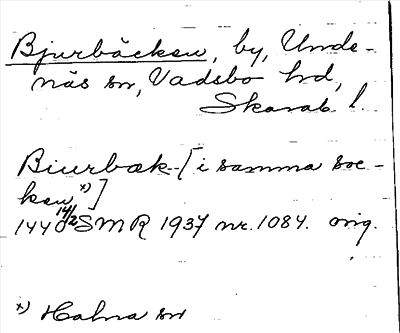 Bjurbäcken, by, Unde-
näs sn, Vadsbo hd,
Skarab l.
Biurbæk [i samma soc-
ken x)]
1440 14/2 SMR 1937 nr. 1084. orig.
x) Halna sn